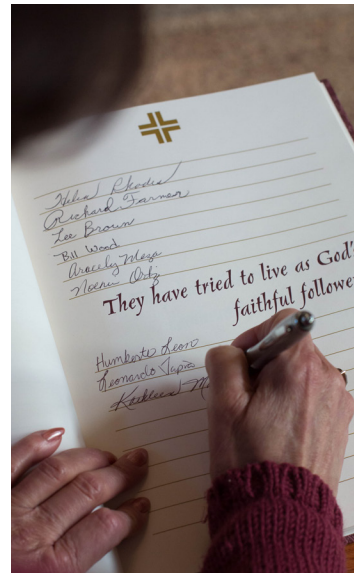 Helen Rhodes
Richard Farmer
Lee Brown
Bill Wood
Aracely Meza
Noemi Ortiz
They have tried to live as God's
faithful followe
Humberto Leono
Leonardo Tapia
Kathleen M